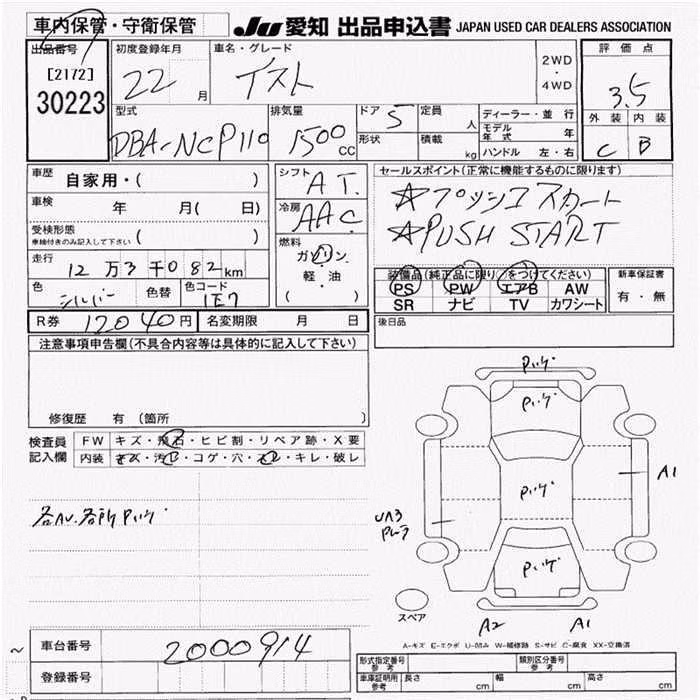 車内保管・守衛保管
JU 愛知 出品申込書 JAPAN USED CAR DEALERS ASSOCIATION
出品番号
[2172]
30223
初度登録年月
22 月
車名・グレード
イスト
2WD
・
4WD
評価点
3.5
外装 内装
C B
型式
DBA-NCP110
排気量
1500 CC
ドア 5
形状
定員 人
積載 kg
ディーラー・並行
モデル年式 年
ハンドル 左・右
車歴 自家用・( )
車検 年 月( 日)
受検形態
車検付きのみ記入して下さい ( )
走行 12万3千082km
色 シルバー 色替 色コード 1E7
シフト AT
冷房 AAC
燃料
ガソリン
軽・油
( )
セールスポイント(正常に機能するものに限ります)
☆プッシュスタート
☆PUSH START
装備品(純正品に限り○をつけてください)
PS PW エアB AW
SR ナビ TV カワシート
新車保証書
有・無
R券 12040円 名変期限 月 日
後日品
注意事項申告欄(不具合内容等は具体的に記入して下さい)
修復歴 有(箇所 )
検査員記入欄
FW キズ・飛石・ヒビ割・リペア跡・X要
内装 キズ・汚れ・コゲ・穴・スレ・キレ・破レ
A1
UA3
A2 A1
スペア
A-キズ E-エクボ U-凹み W-補修跡 S-サビ C-腐食 XX-交換済
車台番号 2000914
登録番号
型式指定番号 参考
類別区分番号 参考
車庫証明用 参考 長さ cm 幅 cm 高さ cm